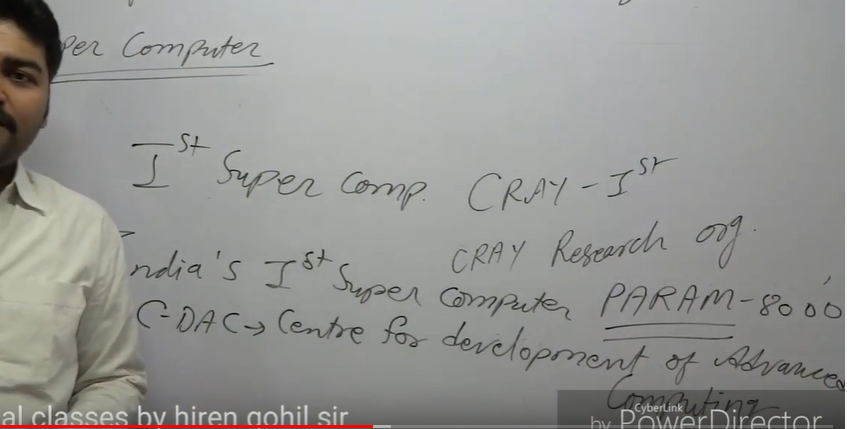 per Computer
Ist Super Comp. CRAY-Ist
CRAY Research org.
India's Ist Super Computer PARAM-8000
C-DAC→ Centre for development of Advanced
Computing
al classes by hiren gohil sir
CyberLink
by PowerDirector